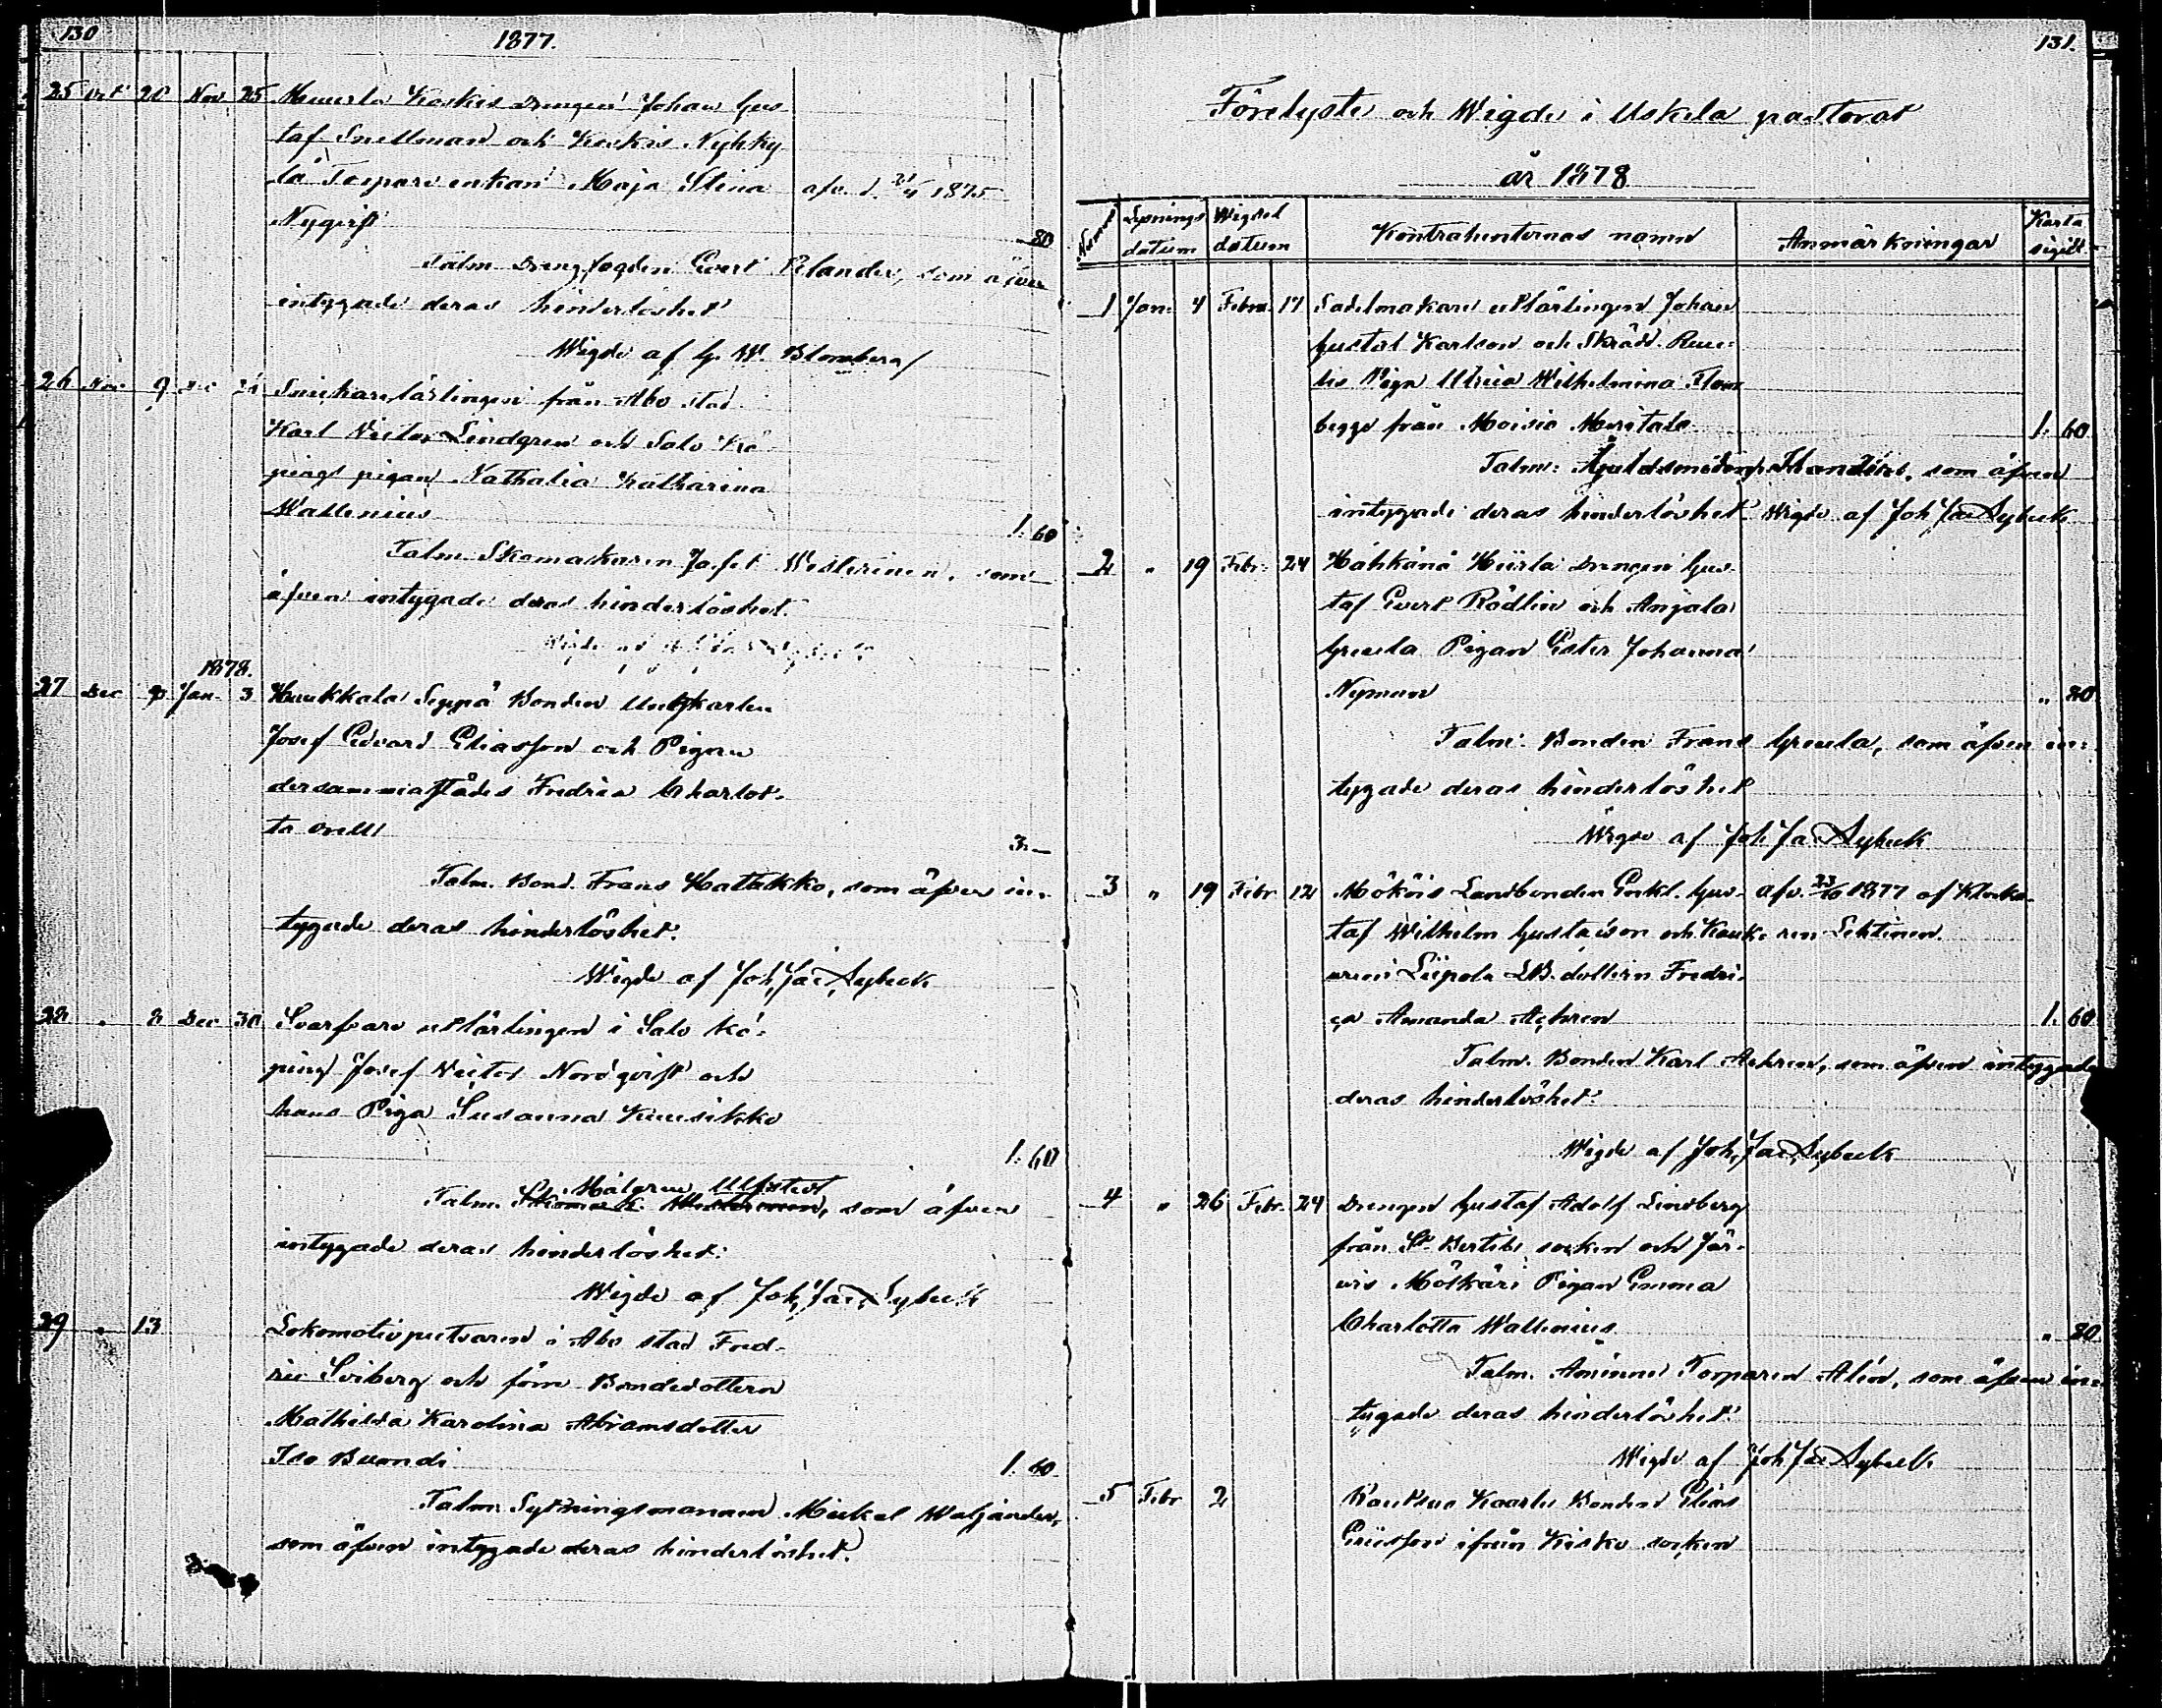 130
1877.
25 Oct 20 Nov 25 Koskis Drengen Johan Gus
taf Snellman och Koskis Nyhky
lä Torpare enkan Maja Stina afv. d. 1875
Nyqvist 80
Talm. Drengfogden Evert Pelander, som äfven
intygade deras hinderlöshet
Wigde af G. W. Blomberg
26 Nov. 9 Dec 26 Snickarelärlingen från Åbo stad
Karl Victor Lindgren och Salo Kö
pings pigan Nathalia Katharina
Wallenius 1. 60
Talm Skomakaren Jafet Westerinen, som
äfven intygade deras hinderlöshet.
1878.
27 Dec Jan. 3 Huukkala Seppä Bonden Unghkarlen
Josef Edvard Eliasson och Pigan
dersammastädes Fredrica Charlot-
ta Orell
3. —
Talm. Bond. Frans Hattakko, som äfven in-
tygade deras hinderlöshet.
Wigde af Joh. Jac. Sybeck
28 " 8 Dec 30 Svarfvare utlärlingen i Salo Kö-
ping Josef Victor Nordqvist och
hans Piga Susanna Kuusikko
1. 60
Målaren Ulfstedt
Talm. Skomak. Westerinen, som äfven
intygade deras hinderlöshet.
Wigde af Joh. Jac. Sybeck
29 " 13 Lokomotivputsaren i Åbo stad Fred-
ric Sviberg och förn Bondedottern
Mathilda Karolina Abramsdotter
Iso Buondi 1. 60
Talm. Sytningsmannen Mickel Waljander,
som äfven intygade deras hinderlöshet.
131.
Förelyste och Wigde i Uskela pastorat
år 1878
Num. Lysnings datum Wigsel datum Kontrahenternas namn Anmärkningar Karta sigill.
1 Jan. 4 Febru. 17 Sadelmakare utlärlingen Johan
Gustaf Karlson och Skrädd.
Piga Ulrica Wilhelmina
begge från Moisio Meritalo 1. 60
Talm: Guldsmeden Thandin, som äfven
intygade deras hinderlöshet. Wigde af Joh Jac Sybeck
2 " 19 Febr. 24 Hähkänä Hiirla Drengen Gus-
taf Evert Rödlin och Anjala
Greula Pigan Ester Johanna
Nyman " 80
Talm. Bonden Frans Greula, som äfven in-
tygade deras hinderlöshet
Wigde af Joh Jac Sybeck
3 " 19 Febr 12 Mökös Landbonden Enkl. Gus- afv. 23/10 1877 af Klocka-
taf Wilhelm Gustafson och Kauk- ren Lehtinen.
Liipola LB. dottern Fredri-
ca Amanda Achren 1. 60
Talm. Bonden Karl Achren, som äfven intygade
deras hinderlöshet.
Wigde af Joh. Jac. Sybeck
4 " 26 Febr. 24 Drengen Gustaf Adolf Lindberg
från St. Bertils socken och Jär-
vis Mötkäri Pigan Emma
Charlotta Wallenius " 80
Talm. Äminne Torparen Alén, som äfven in-
tygade deras hinderlöshet.
Wigde af Joh Jac Sybeck
5 Febr 2 Kaarle Bonden Elias
Ericsson ifrån Kisko socken